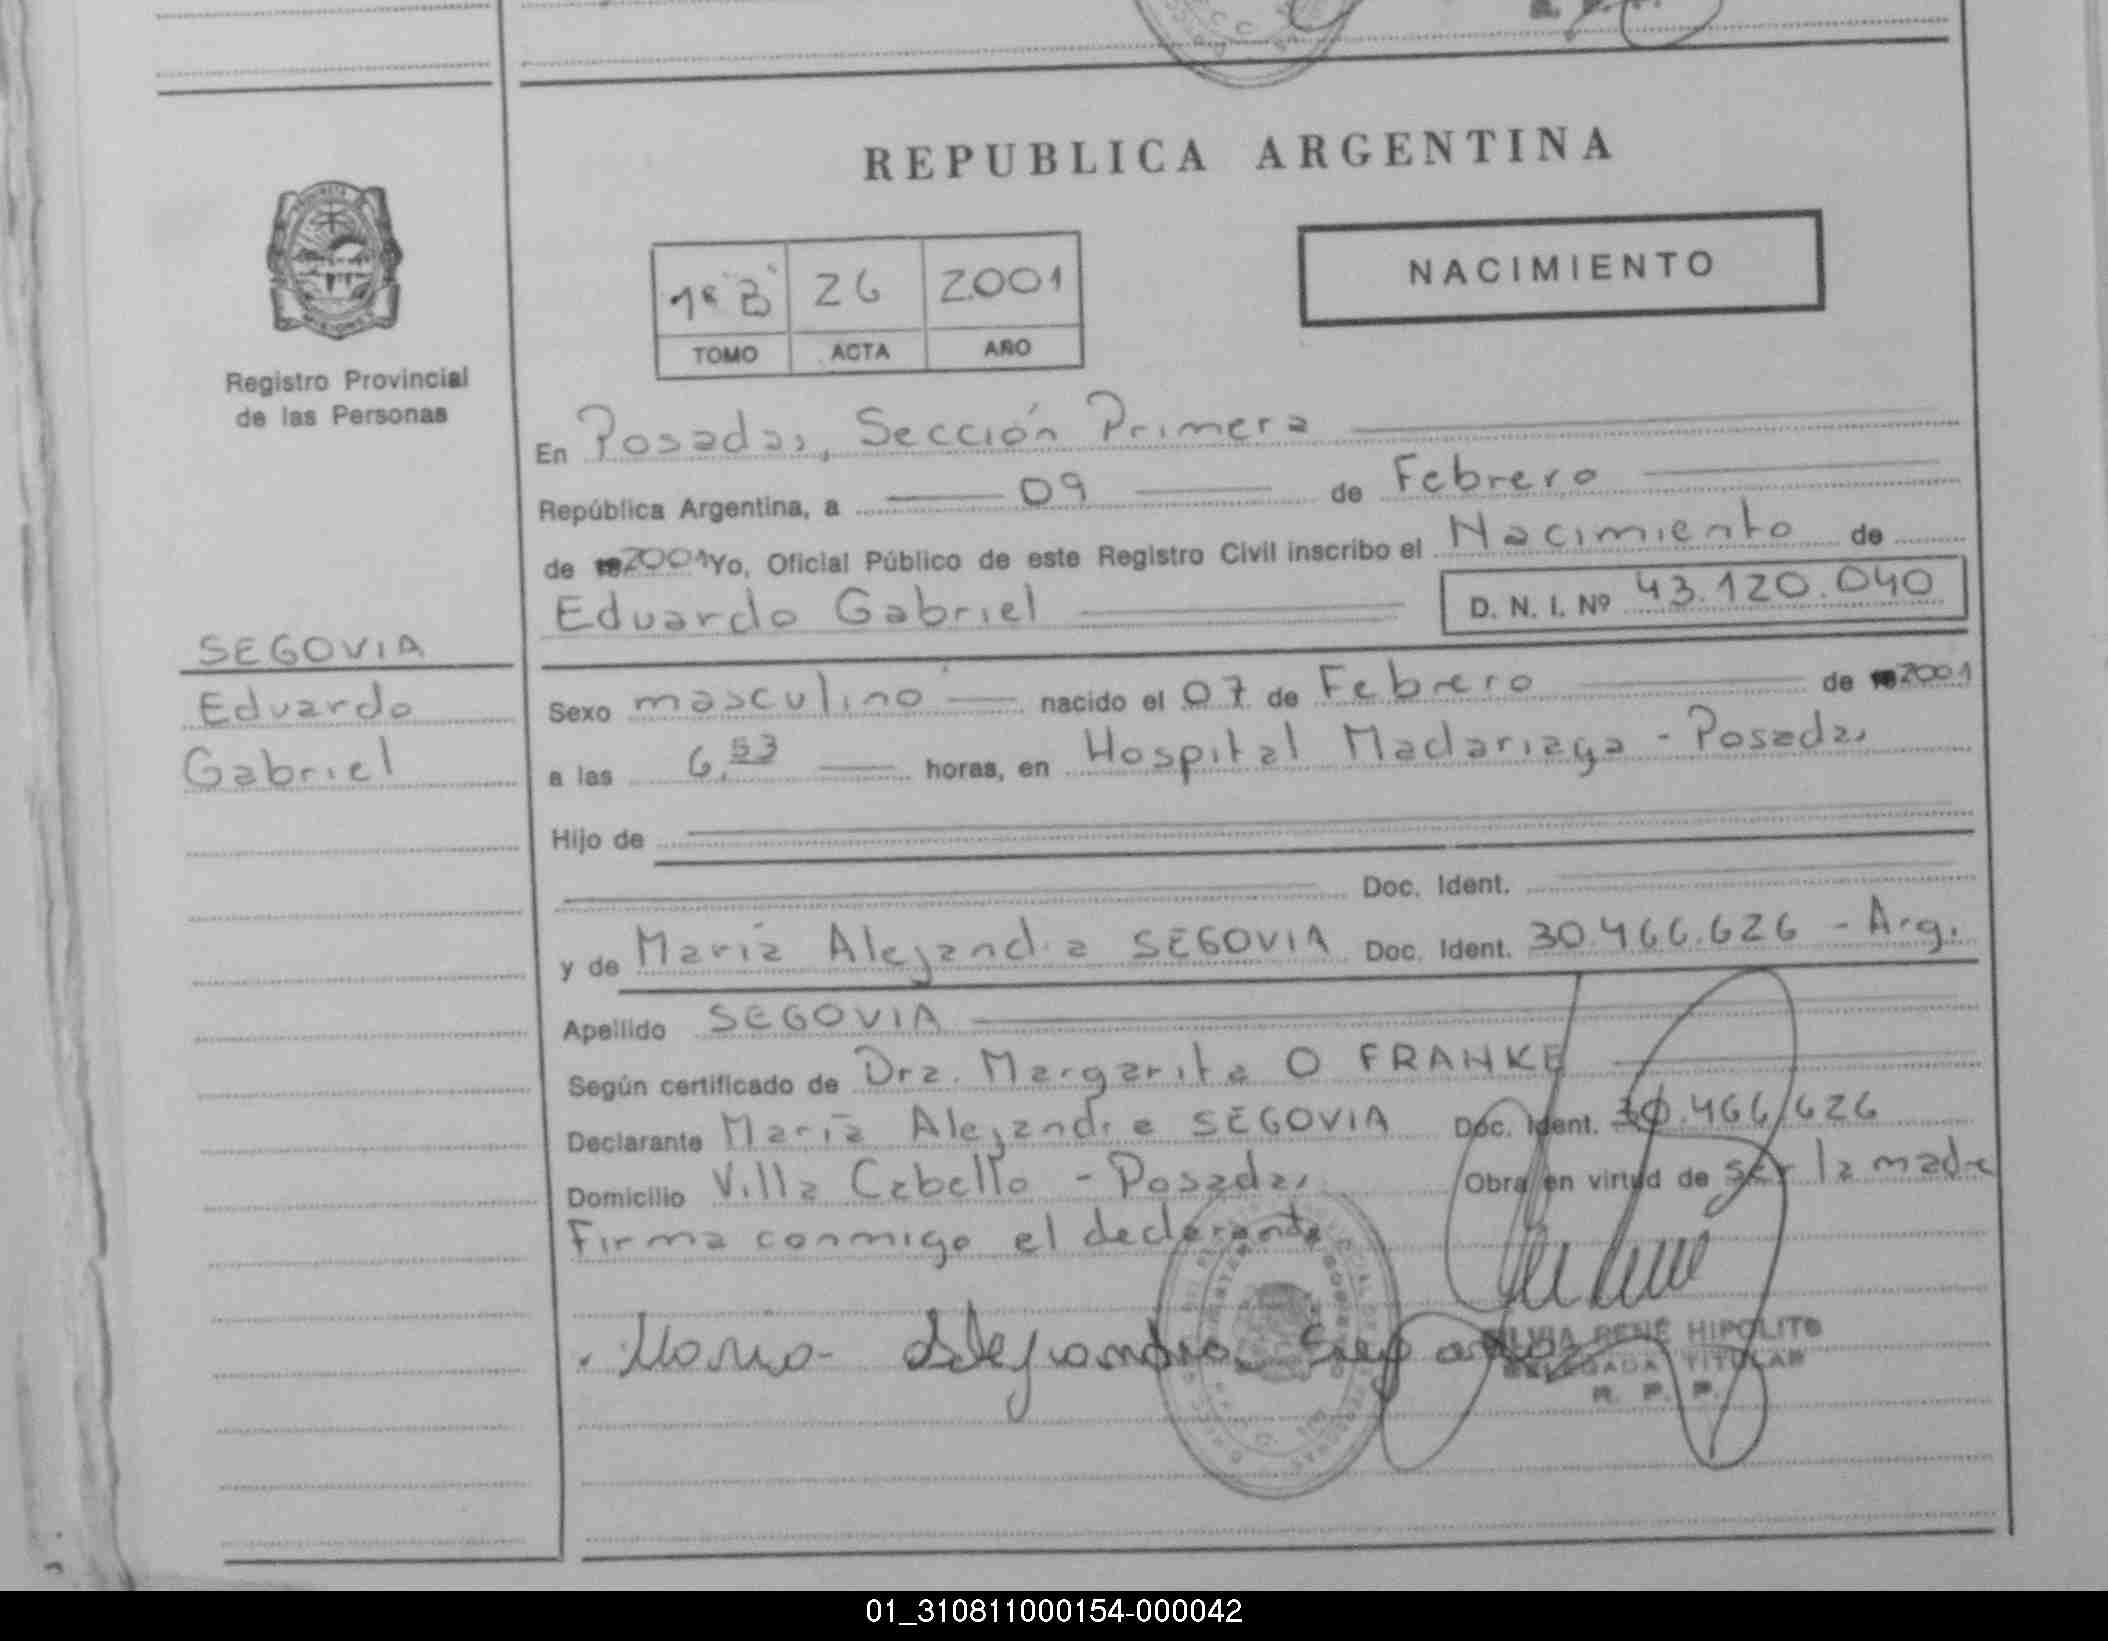 REPUBLICA ARGENTINA
NACIMIENTO
1º "B" 26 2001
TOMO ACTA AÑO
Registro Provincial
de las Personas
En Posadas, Sección Primera
República Argentina, a 09 de Febrero
de 2001 Yo, Oficial Público de este Registro Civil inscribo el Nacimiento de
Eduardo Gabriel D. N. I. Nº 43.120.040
SEGOVIA
Eduardo
Gabriel
Sexo masculino nacido el 07 de Febrero de 2001
a las 6,53 horas, en Hospital Madariaga - Posadas
Hijo de
Doc. Ident.
y de María Alejandra SEGOVIA Doc. Ident. 30.466.626 - Arg.
Apellido SEGOVIA
Según certificado de Dra. Margarita O FRANKE
Declarante María Alejandra SEGOVIA Doc. Ident. 30.466.626
Domicilio Villa Cabello - Posadas Obra en virtud de ser la madre
Firma conmigo el declarante
Maria Alejandra
SILVIA RENÉ HIPOLITO
DELEGADA TITULAR
R. P. P.
01_310811000154-000042